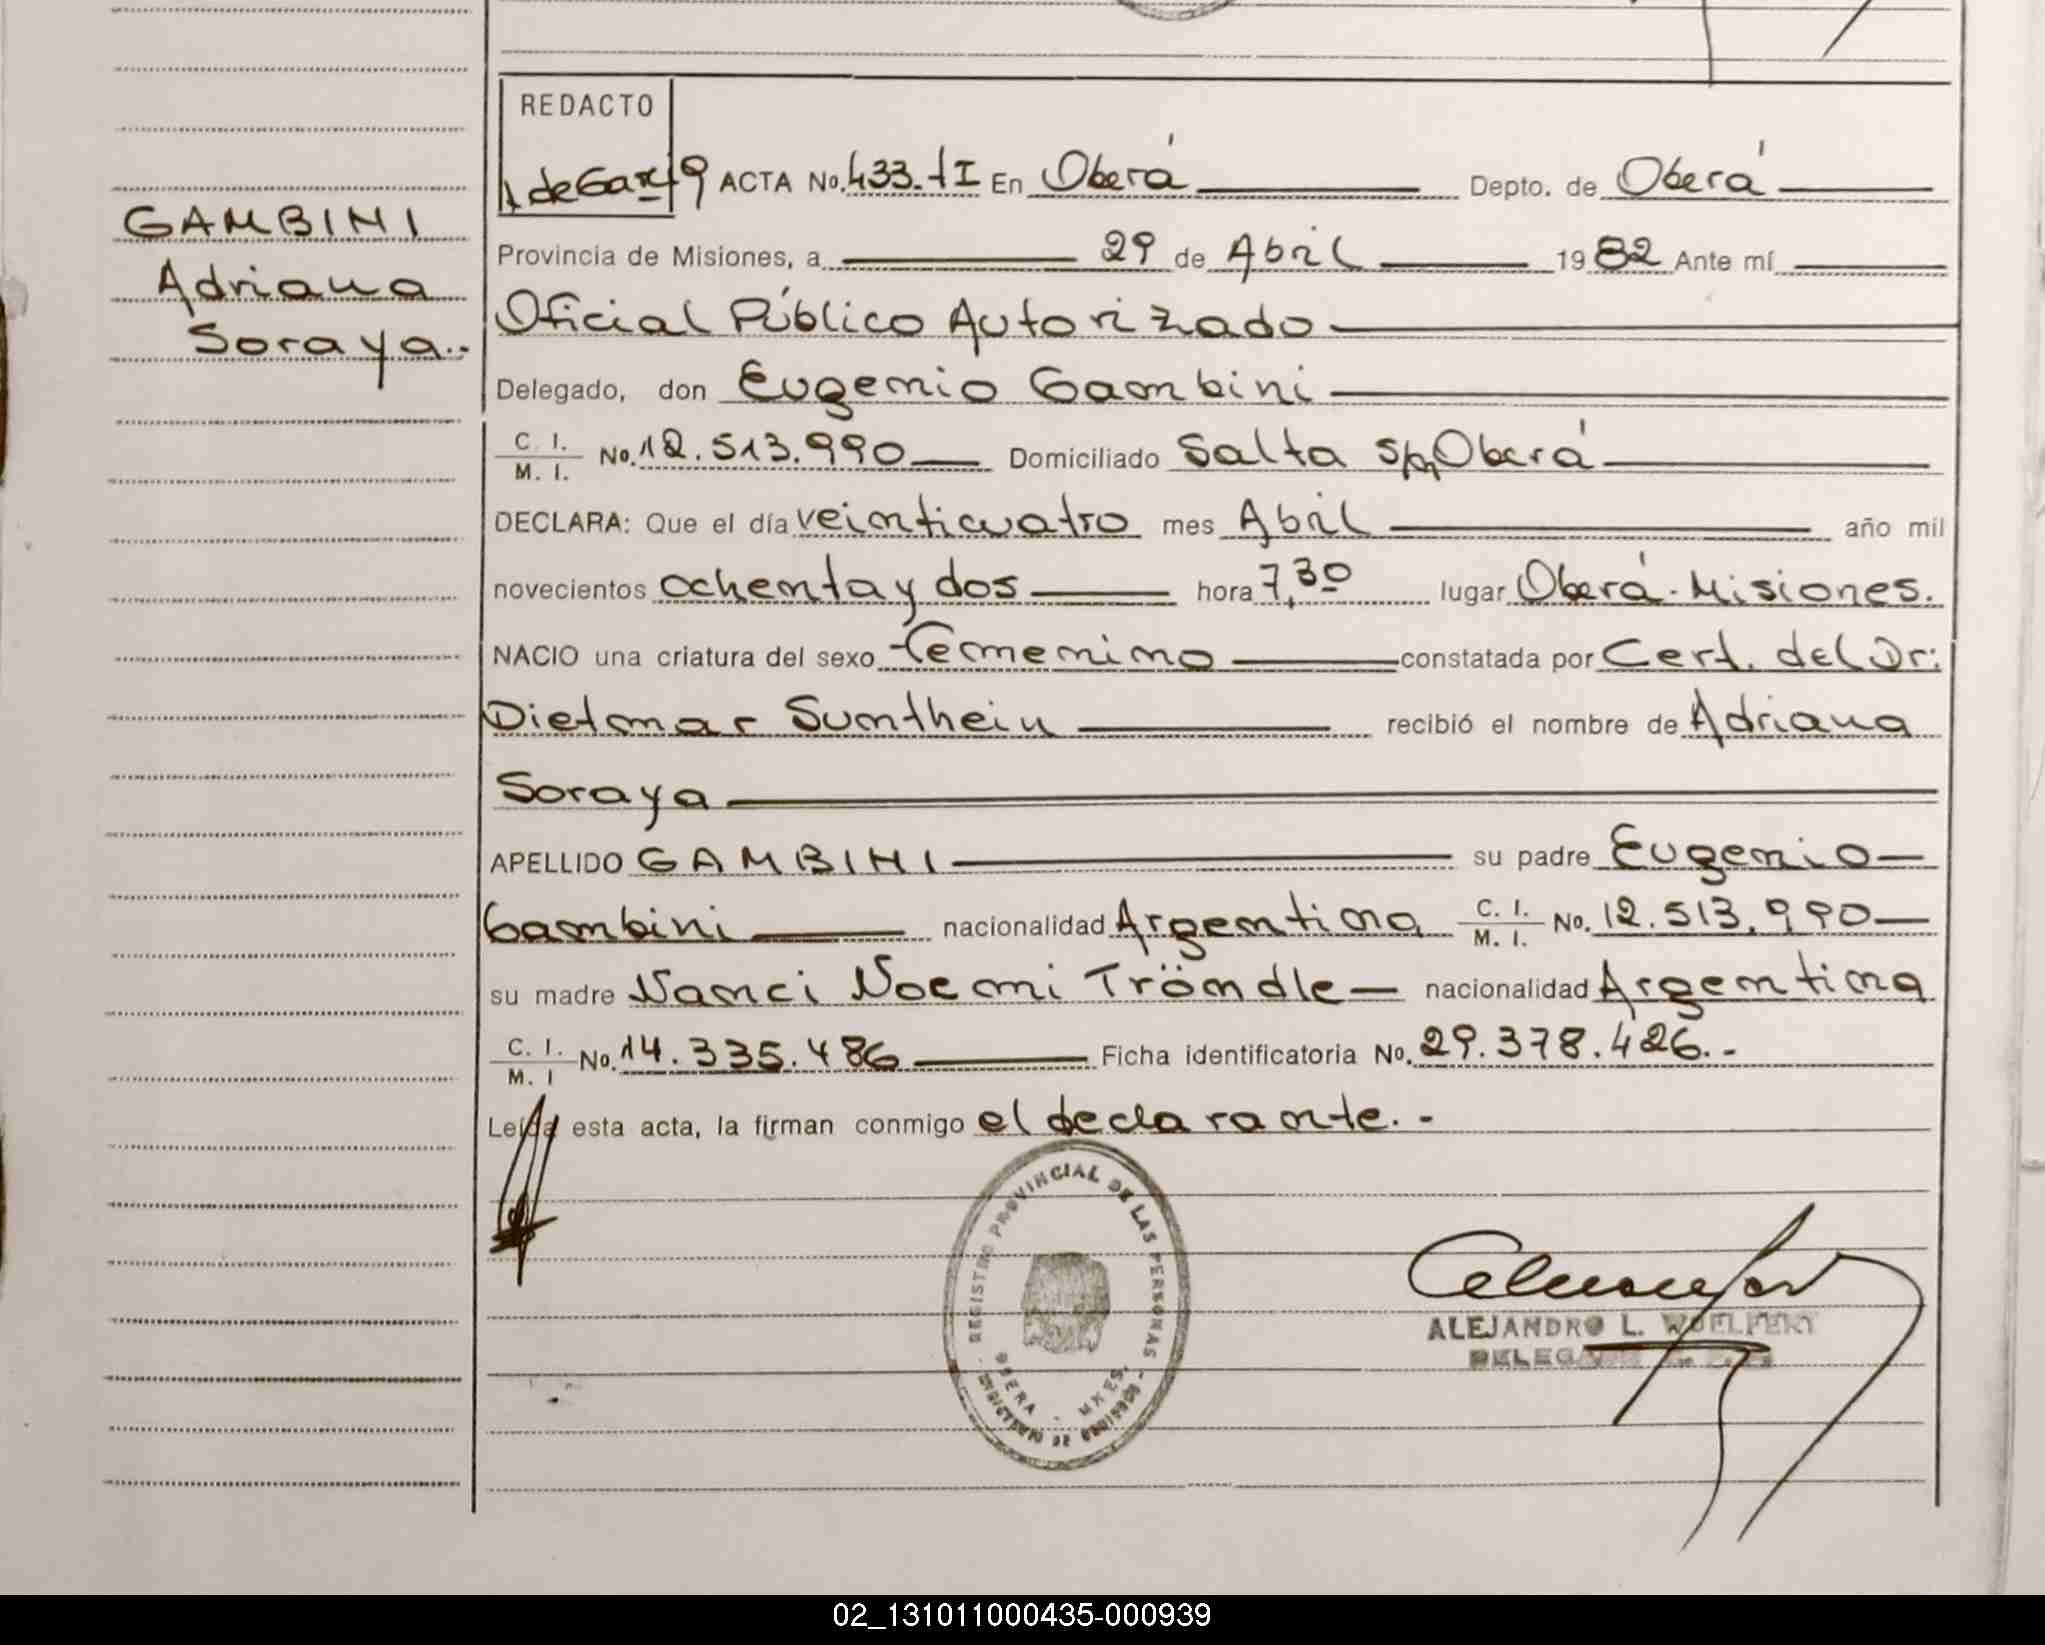 REDACTO
GAMBINI
Adriana
Soraya.-
ACTA No. 433.-tI En Oberá Depto. de Oberá
Provincia de Misiones, a 29 de Abril 1982 Ante mí
Oficial Público Autorizado
Delegado, don Eugenio Gambini
C. I. / M. I. No. 12.513.990 Domiciliado Salta s/n Oberá
DECLARA: Que el día veinticuatro mes Abril año mil
novecientos ochenta y dos hora 7,30 lugar Oberá-Misiones.
NACIO una criatura del sexo femenino constatada por Cert. del Dr:
Dietmar Sumthein recibió el nombre de Adriana
Soraya
APELLIDO GAMBINI su padre Eugenio
Gambini nacionalidad Argentina C. I. / M. I. No. 12.513.990
su madre Nanci Noemi Tröndle nacionalidad Argentina
C. I. / M. I No. 14.335.486 Ficha identificatoria No. 29.378.426.-
Leída esta acta, la firman conmigo el declarante.-
REGISTRO PROVINCIAL DE LAS PERSONAS
OBERA - MNES.
ALEJANDRO L. WOELFERT
DELEGADO
02_131011000435-000939